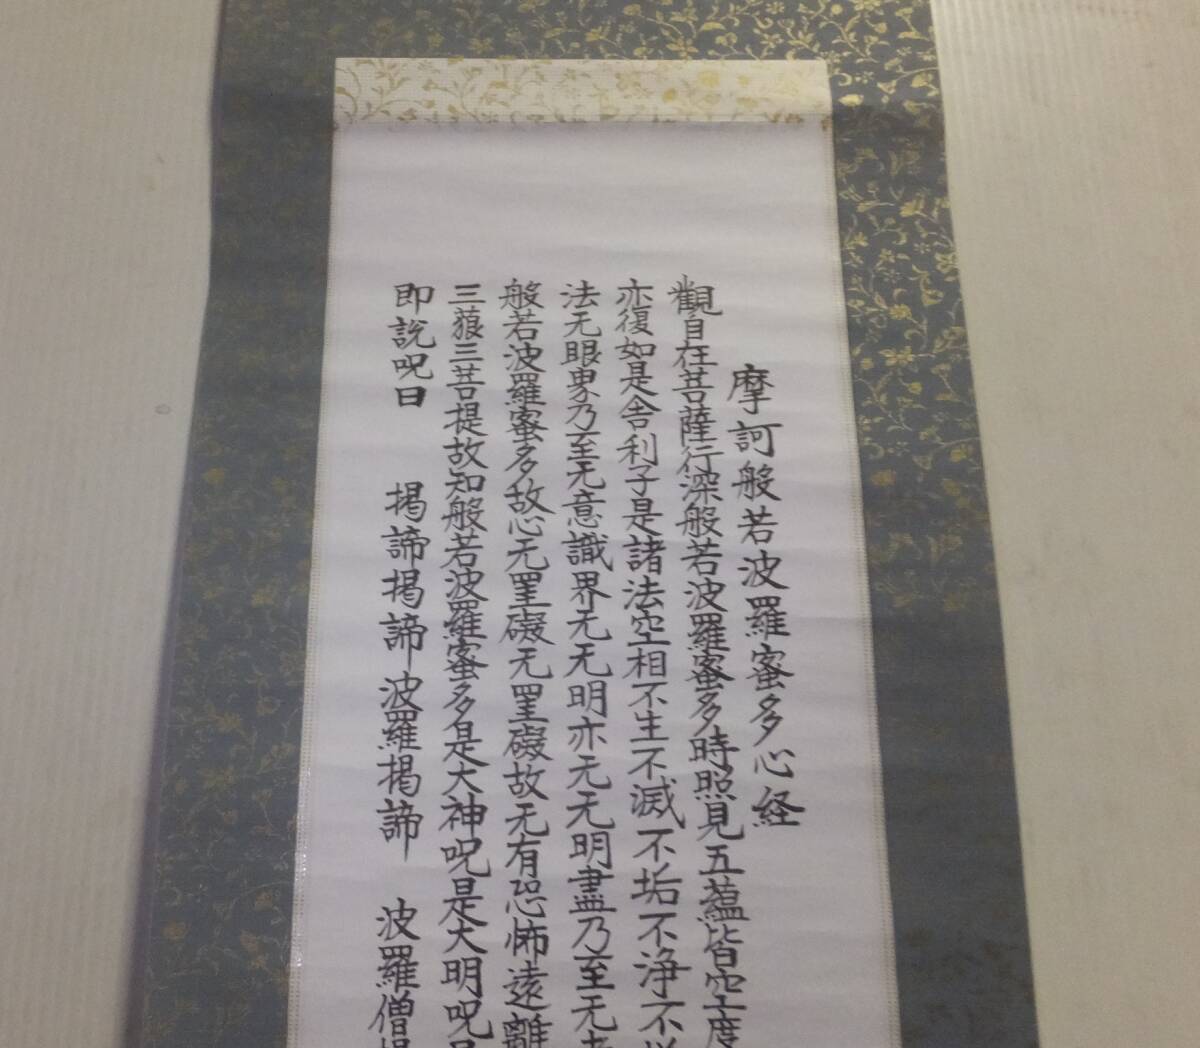 摩訶般若波羅蜜多心経
觀自在菩薩行深般若波羅蜜多時照見五蘊皆空度
亦復如是舍利子是諸法空相不生不滅不垢不浄不
法无眼界乃至无意識界无无明亦无无明盡乃至无老
般若波羅蜜多故心无罣礙无罣礙故无有恐怖遠離
三藐三菩提故知般若波羅蜜多是大神呪是大明呪
即説呪曰 掲諦掲諦波羅掲諦 波羅僧掲